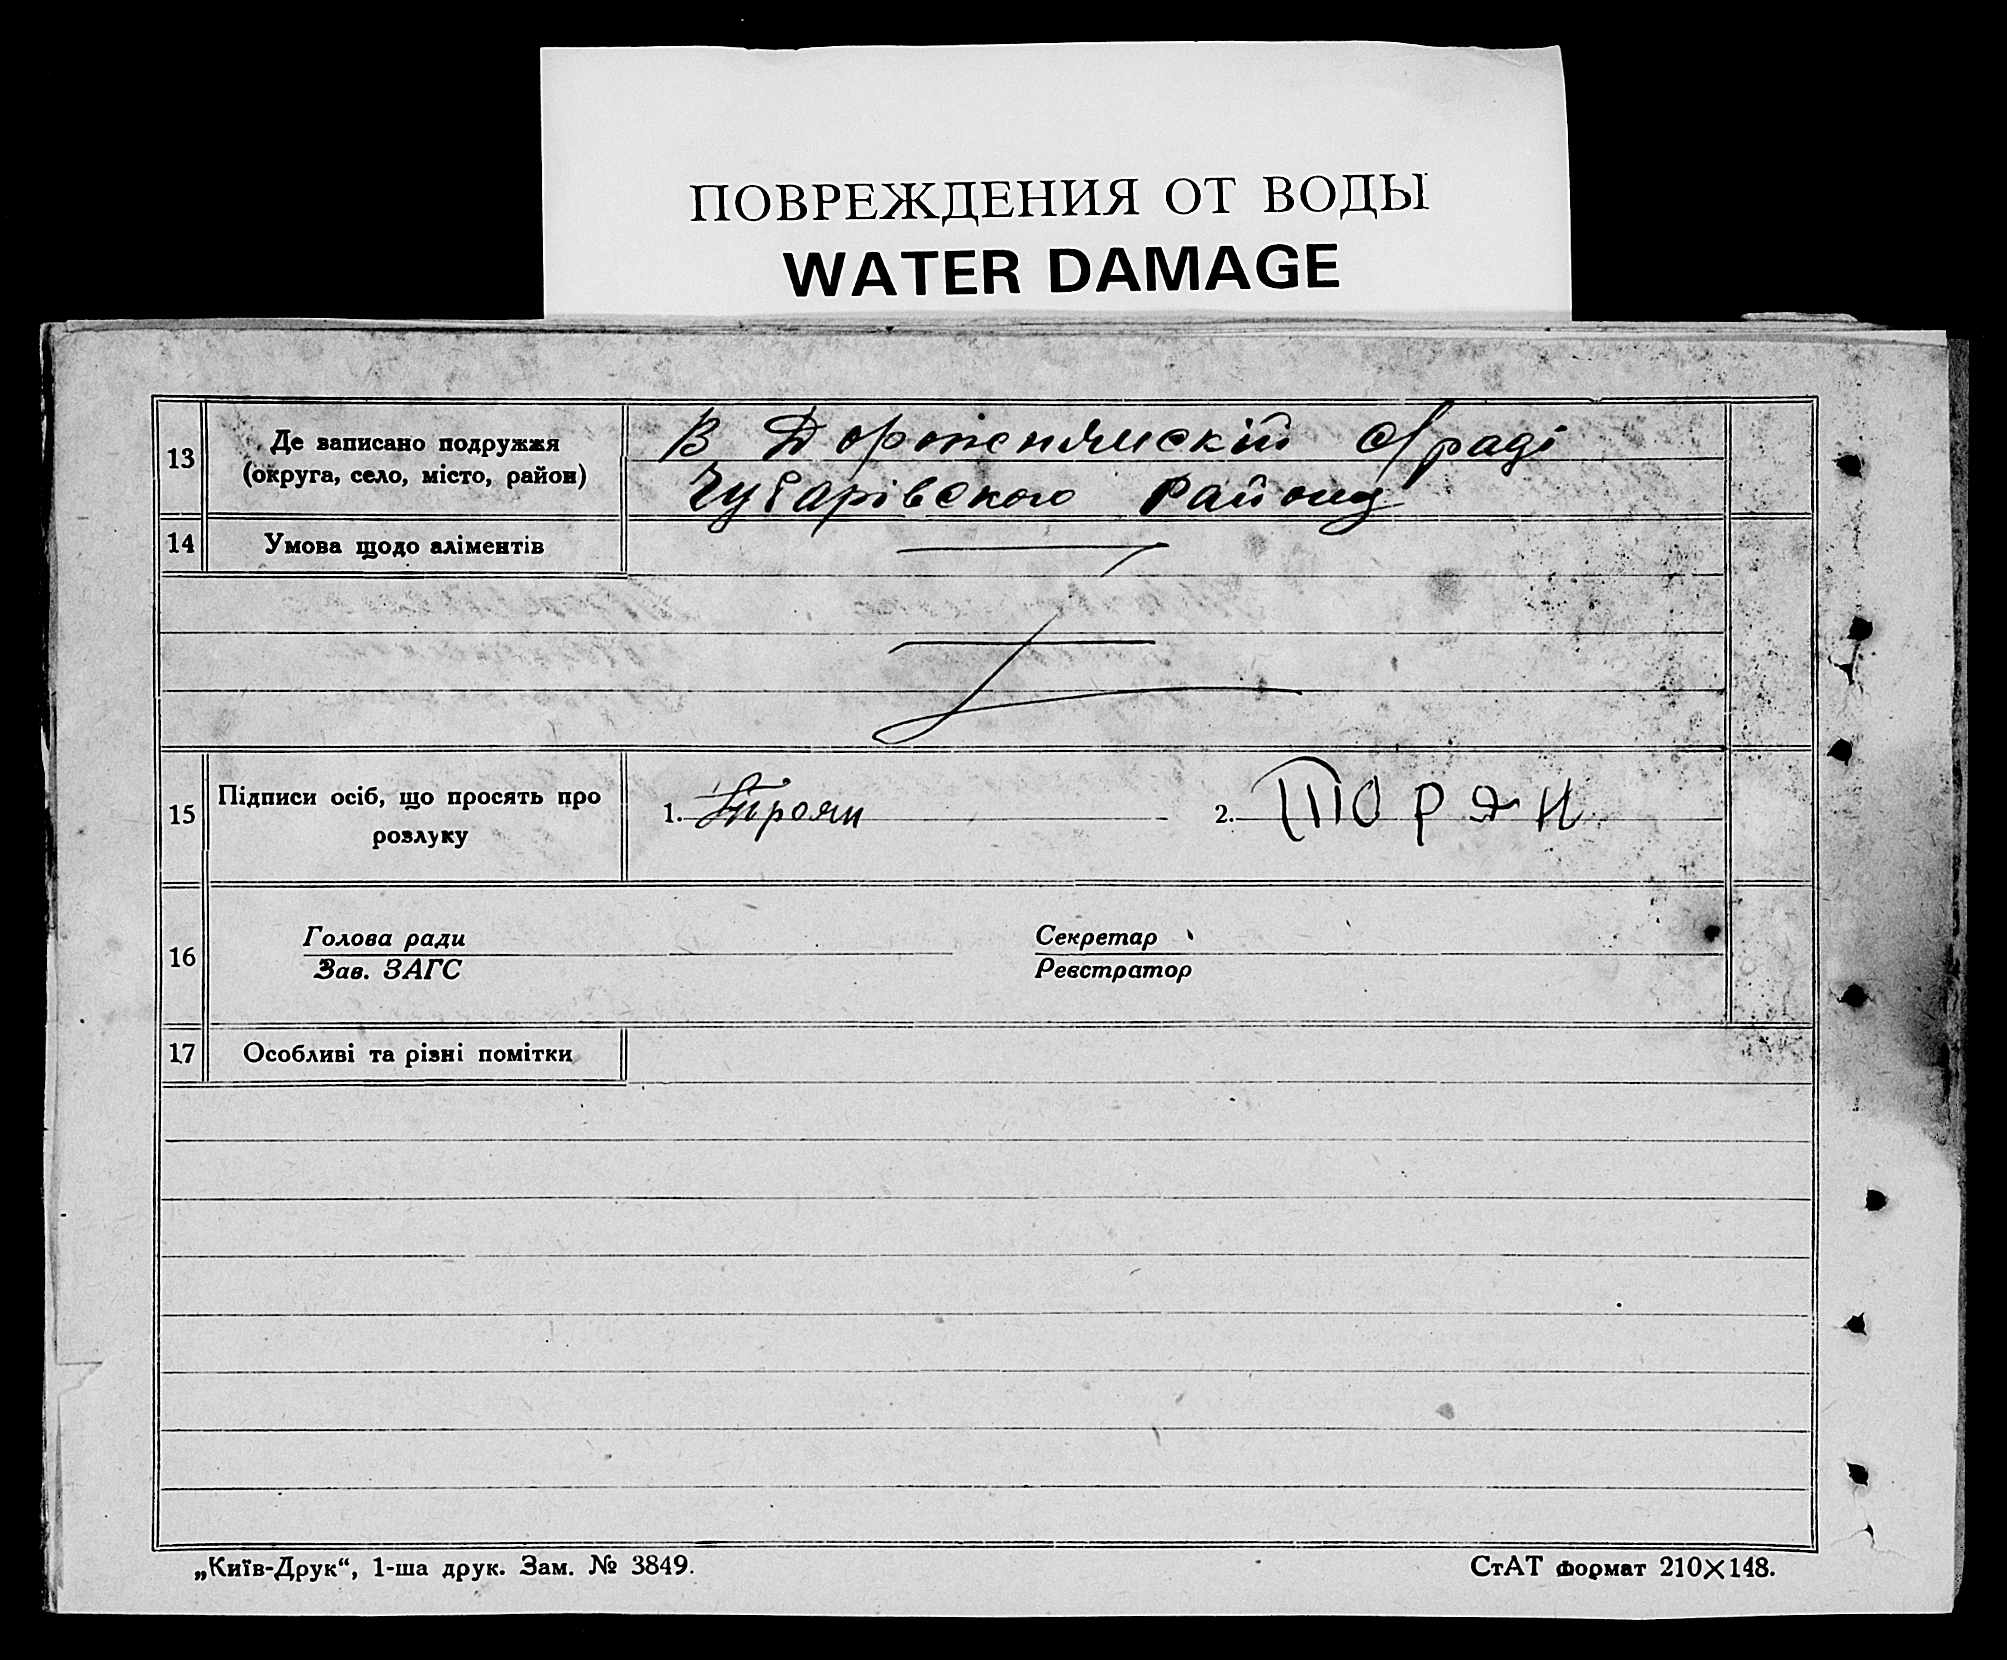 ПОВРЕЖДЕНИЯ ОТ ВОДЫ
WATER DAMAGE
13 Де записано подружжя (округа, село, місто, район)
В с/раді
Чубарівского Району
14 Умова щодо аліментів
15 Підписи осіб, що просять про розлуку
1. Троян 2. ТОРЯН
16 Голова ради Секретар
Зав. ЗАГС Реєстратор
17 Особливі та різні помітки
„Київ-Друк“, 1-ша друк. Зам. № 3849. СтАТ формат 210×148.